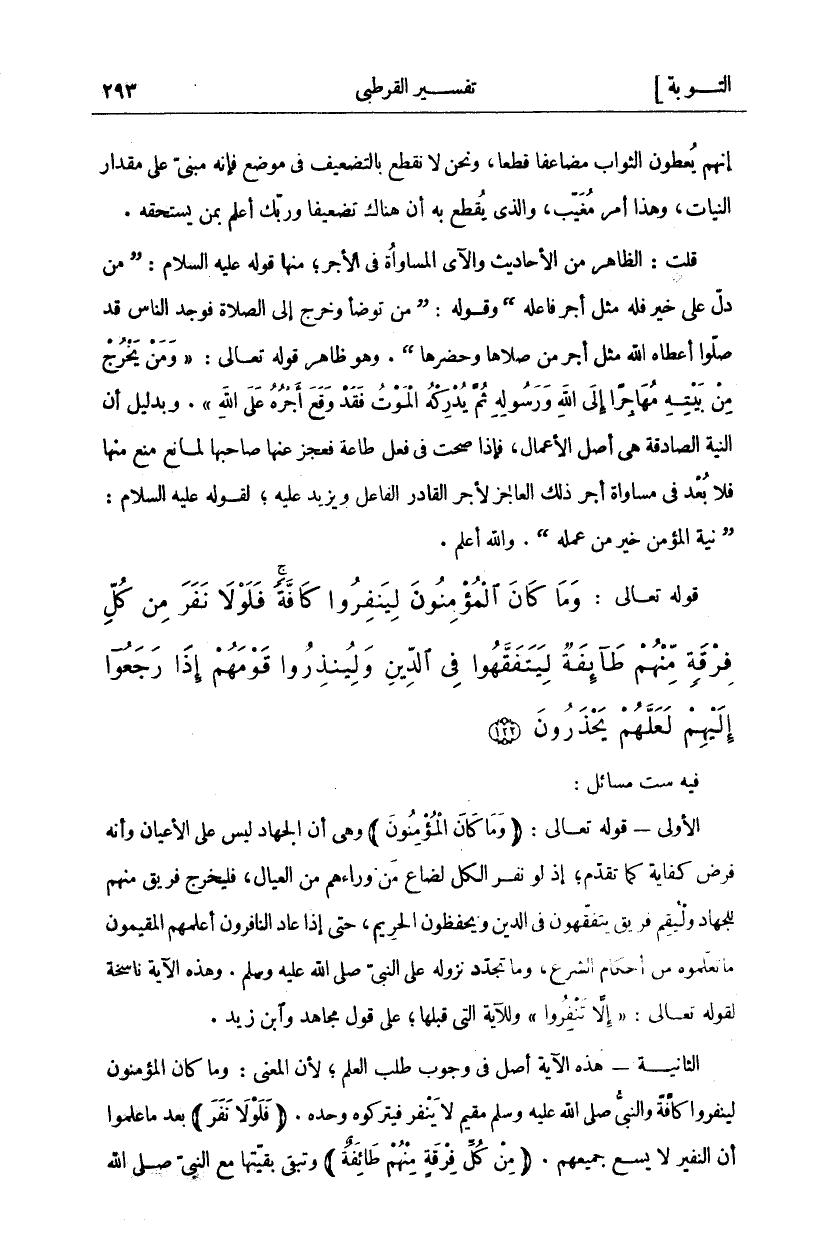 التـــوبة ]
تفســـير القرطبى
٢٩٣
إنهم يُعطون الثواب مضاعفا قطعا، ونحن لا نقطع بالتضعيف فى موضع فإنه مبنىّ على مقدار
النيات، وهذا أمر مُغَيَّب، والذى يُقطع به أن هناك تضعيفا وربّك أعلم بمن يستحقه .
قلت : الظاهر من الأحاديث والآى المساواُة فى الأجر؛ منها قوله عليه السلام : ” من
دلّ على خير فله مثل أجر فاعله “ وقـــوله : ” من توضأ وخرج إلى الصلاة فوجد الناس قد
صلّوا أعطاه الله مثل أجر من صلاها وحضرها “ . وهو ظاهر قوله تعـــالى : « وَمَنْ يَخْرُجْ
مِنْ بَيْتِــهِ مُهَاجِرًا إِلَى اللهِ وَرَسُولِهِ ثُمَّ يُدْرِكْهُ الْمَوْتُ فَقَدْ وَقَعَ أَجْرُهُ عَلَى اللهِ » . وبدليل أن
النية الصادقة هى أصل الأعمال، فإذا صحت فى فعل طاعة فعجز عنها صاحبها لمـانع منع منها
فلا بُعْد فى مساواة أجر ذلك العاجز لأجر القادر الفاعل ويزيد عليه ؛ لقـــوله عليه السلام :
” نية المؤمن خير من عمله “ . والله أعلم .
قوله تعـالى : وَمَا كَانَ ٱلْمُؤْمِنُونَ لِيَنفِرُوا كَافَّةًۚ فَلَوْلَا نَفَرَ مِن كُلِّ
فِرْقَةٍ مِّنْهُمْ طَآئِفَةٌ لِّيَتَفَقَّهُوا فِى ٱلدِّينِ وَلِيُنذِرُوا قَوْمَهُمْ إِذَا رَجَعُوٓا
إِلَيْهِمْ لَعَلَّهُمْ يَحْذَرُونَ ١٢٢
فيه ست مسائل :
الأولى — قوله تعـالى : ﴿ وَمَا كَانَ الْمُؤْمِنُونَ ﴾ وهى أن الجهاد ليس على الأعيان وأنه
فرض كفاية كما تقدّم؛ إذ لو نفــر الكل لضاع مَن وراءهم من العيال، فليخرج فريق منهم
للجهاد ولْيقم فريق يتفقّهون فى الدين ويحفظون الحريم، حتى إذا عاد النافرون أعلمهم المقيمون
ما تعلّموه من أحكام الشرع، وما تجدّد نزوله على النبىّ صلى الله عليه وسلم . وهذه الآية ناسخة
لقوله تعــالى : « إِلَّا تَنْفِرُوا » وللآية التى قبلها؛ على قول مجاهد وٱبن زيد .
الثانيـــة — هذه الآية أصل فى وجوب طلب العلم ؛ لأن المعنى : وما كان المؤمنون
لينفروا كافّةً والنبىُّ صلى الله عليه وسلم مقيم لا يَنْفر فيتركوه وحده . ﴿ فَلَوْلَا نَفَرَ ﴾ بعد ما علموا
أن النفير لا يســع جميعهم . ﴿ مِنْ كُلِّ فِرْقَةٍ مِنْهُمْ طَائِفَةٌ ﴾ وتبقى بقيّتها مع النبىّ صــلى الله